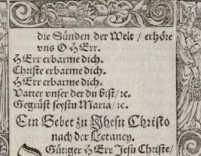 die Sünden der Welt / erhöre
vns O HErr.
HErr erbarme dich.
Christe erbarme dich.
HErr erbarme dich.
Vatter vnser der du bist / ꝛc.
Gegrüst seystu Maria / ꝛc.
Ein Gebet zu Jhesu Christo
nach der Letaney.
O Gütiger HErr Jesu Christe /